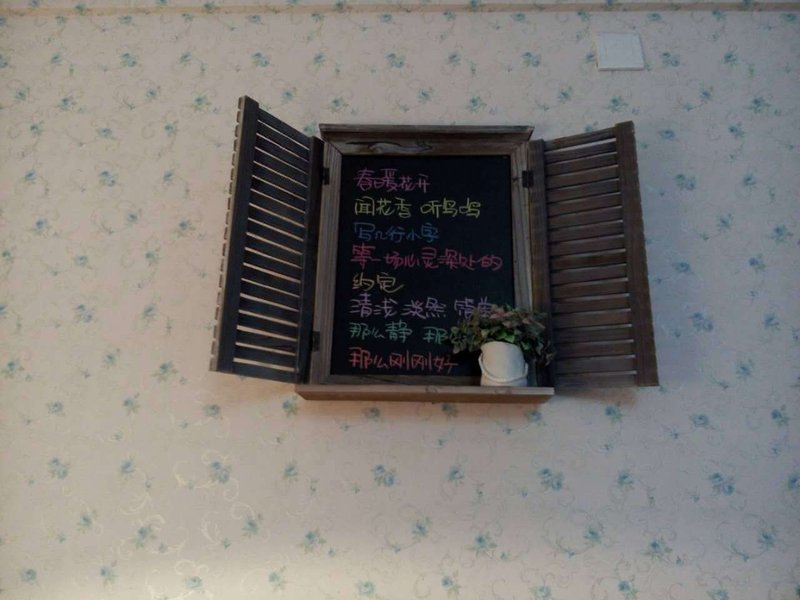 春暖花开
闻花香 听鸟鸣
写几行小字
等一场心灵深处的
约定
清浅 淡然
那么静 那
那么刚刚好